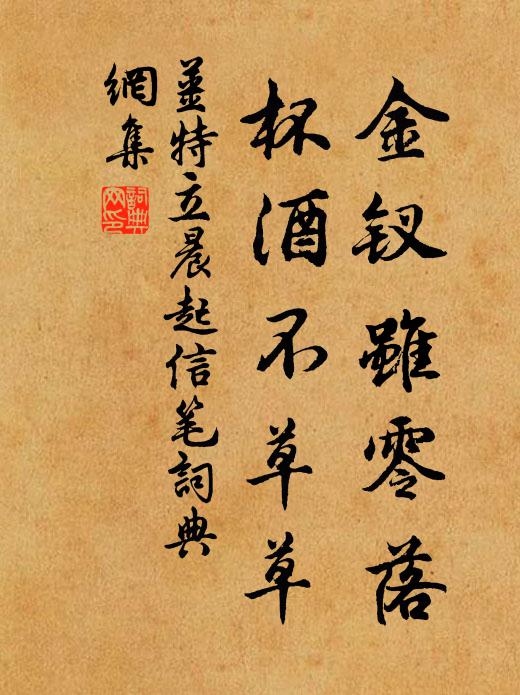 金钗雖零落
杯酒不草草
姜特立晨起信笔詞典
網集
詞典
网印